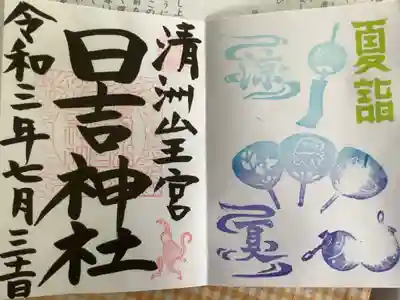 夏詣
涼
夏
清洲山王宮
日吉神社
令和三年七月三十日